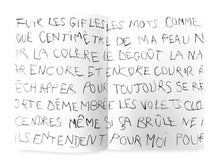 FUIR LES GIFLES LES MOTS COMME
QUE CENTIMÈTRE DE MA PEAU N
UR LA COLÈRE LE DÉGOÛT LA NA
AR ENCORE ET ENCORE COURIR À
ÉCHAPPER POUR TOUJOURS SE RE
ORTE DÉMEMBRÉ LES VOLETS CLO
CENDRES MÊME SI ÇA BRÛLE NE
ILS ENTENDENT POUR MOI POUR